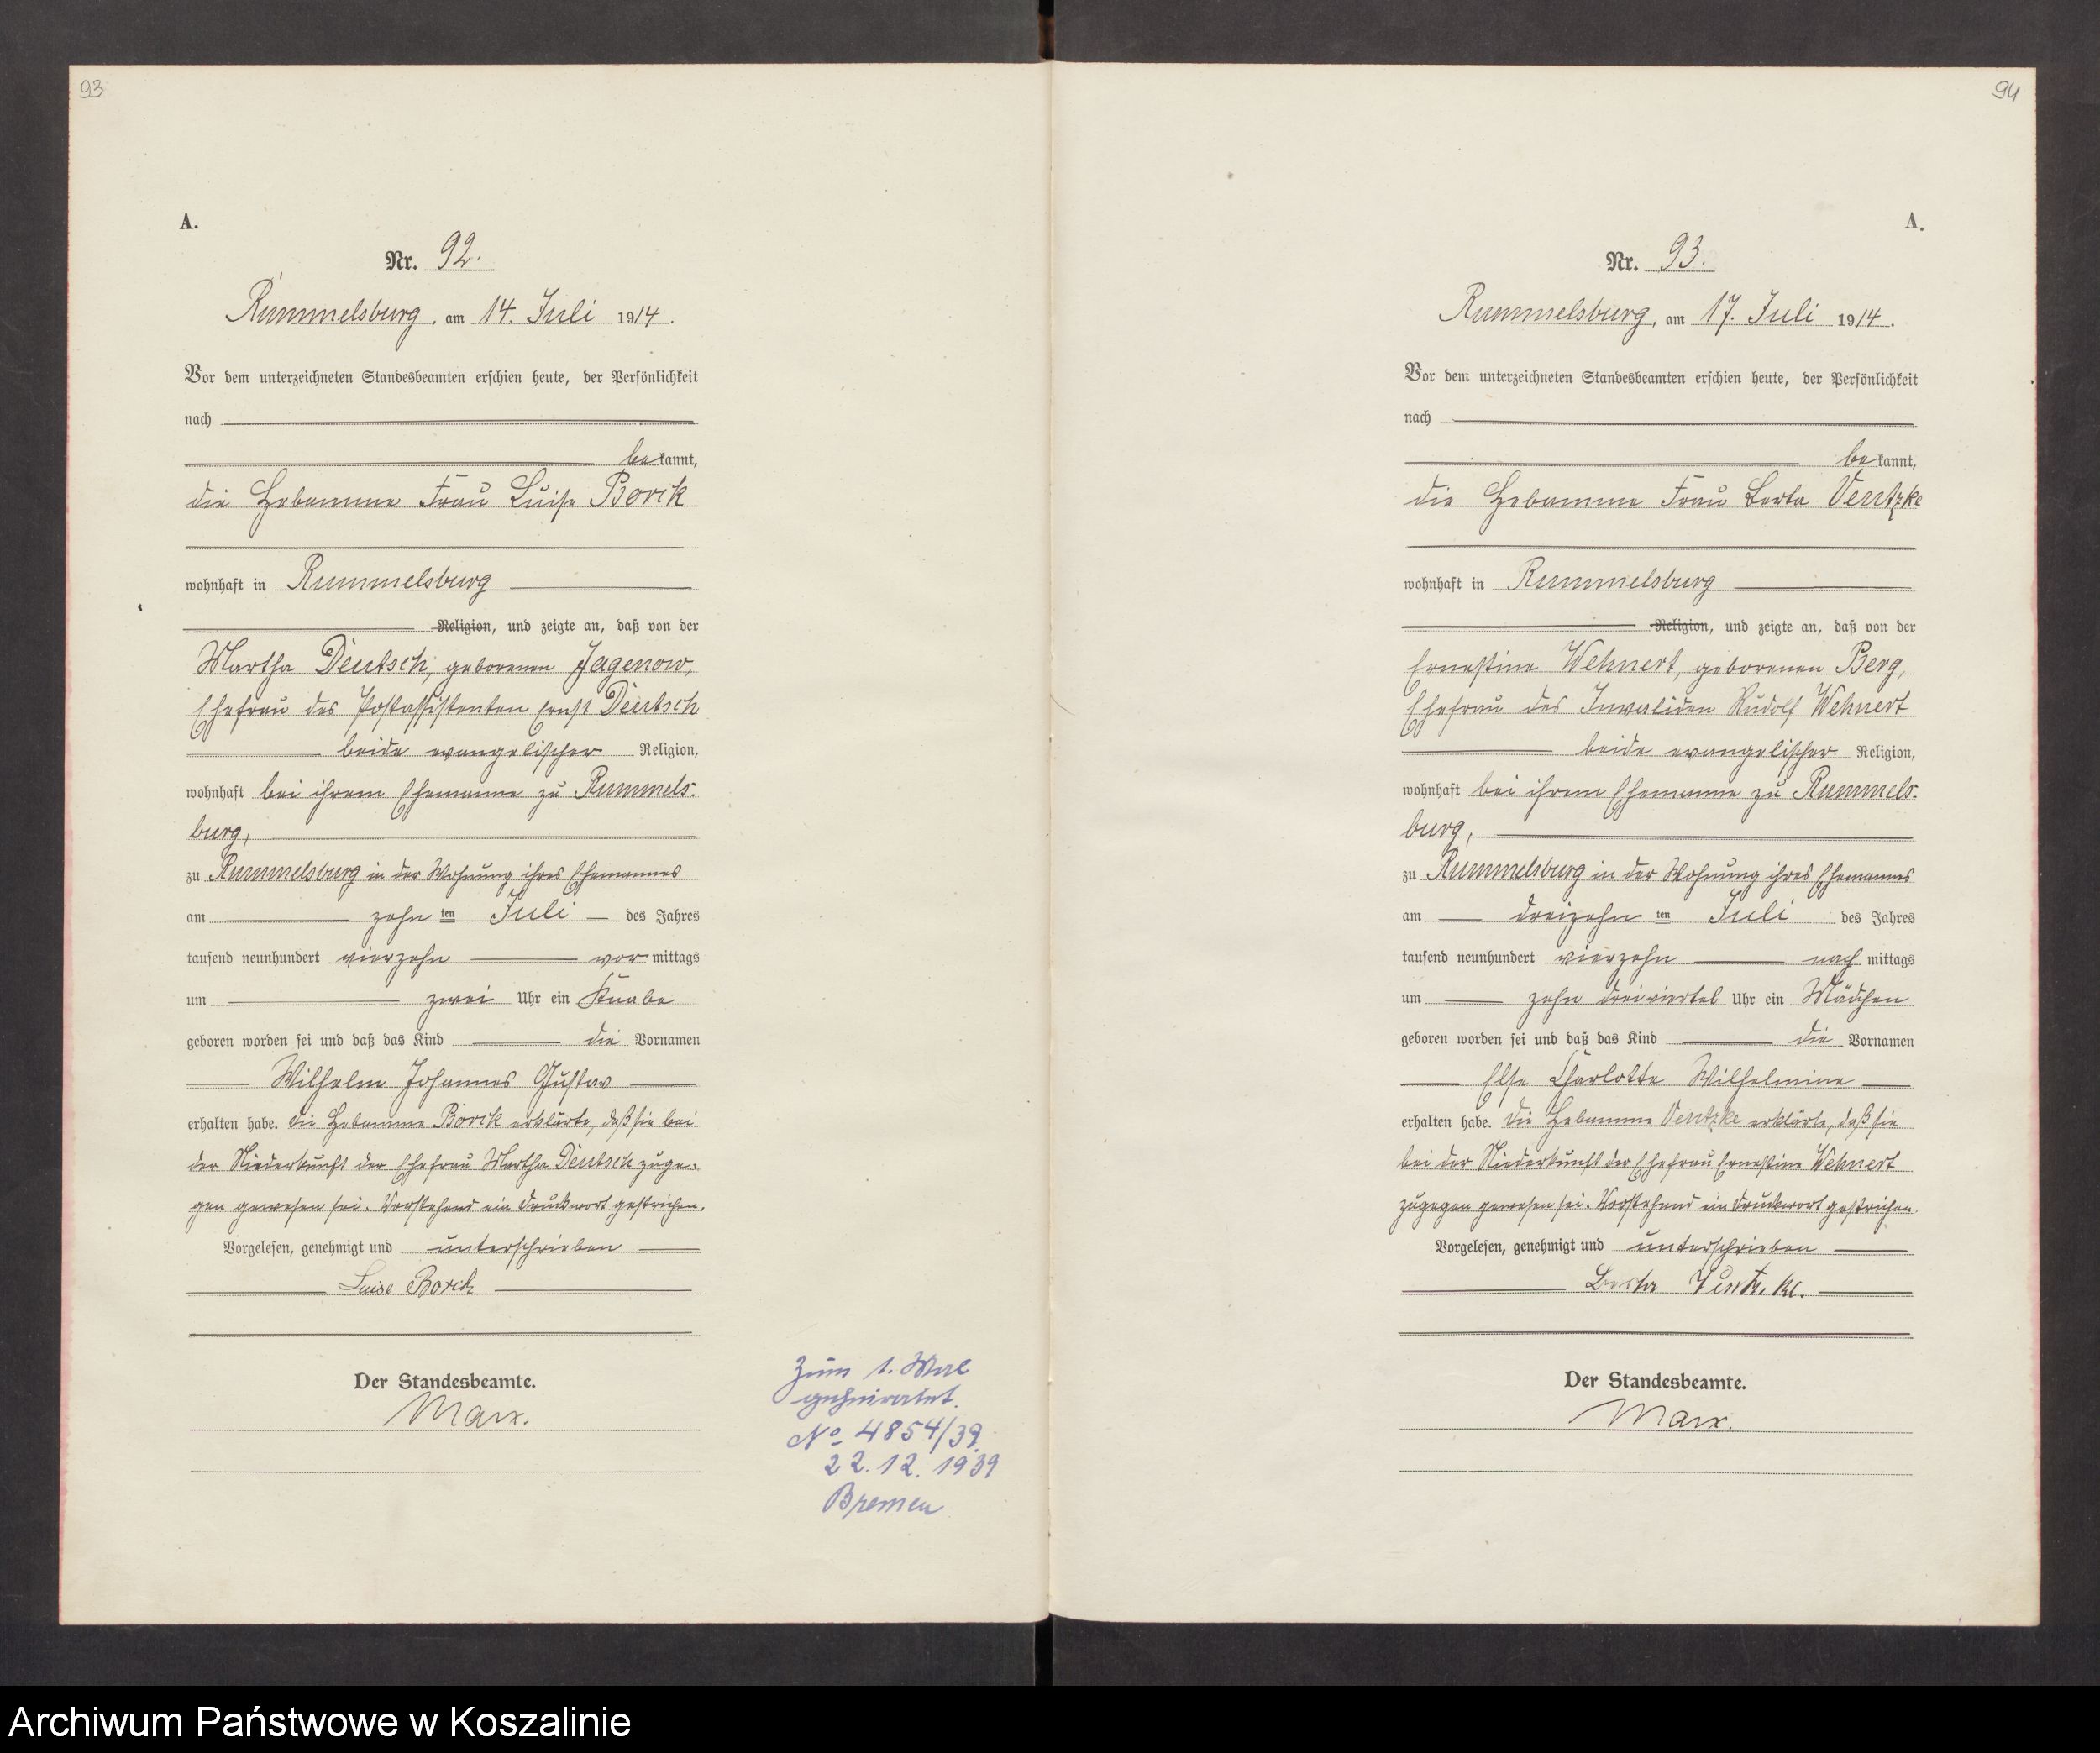 93
A.
Nr. 92.
Rummelsburg, am 14. Juli 1914.
Vor dem unterzeichneten Standesbeamten erschien heute, der Persönlichkeit
nach
bekannt,
die Hebamme Frau Luise Borik
wohnhaft in Rummelsburg
Religion, und zeigte an, daß von der
Martha Deutsch, geborenen Jagenow,
Ehefrau des Postassistenten Ernst Deutsch
beide evangelischer Religion,
wohnhaft bei ihrem Ehemanne zu Rummels-
burg,
zu Rummelsburg in der Wohnung ihres Ehemannes
am zehn ten Juli des Jahres
tausend neunhundert vierzehn vormittags
um zwei Uhr ein Knabe
geboren worden sei und daß das Kind die Vornamen
Wilhelm Johannes Gustav
erhalten habe. Die Hebamme Borik erklärte, daß sie bei
der Niederkunft der Ehefrau Martha Deutsch zuge-
gen gewesen sei. Vorstehend ein Druckwort gestrichen.
Vorgelesen, genehmigt und unterschrieben
Luise Borik
Der Standesbeamte.
Marx.
Zum 1. Mal
geheiratet.
No 4854/39.
22.12.1939
Bremen
94
A.
Nr. 93.
Rummelsburg, am 17. Juli 1914.
Vor dem unterzeichneten Standesbeamten erschien heute, der Persönlichkeit
nach
bekannt,
die Hebamme Frau Berta Ventzke
wohnhaft in Rummelsburg
Religion, und zeigte an, daß von der
Ernestine Wehnert, geborenen Berg,
Ehefrau des Invaliden Rudolf Wehnert
beide evangelischer Religion,
wohnhaft bei ihrem Ehemanne zu Rummels-
burg,
zu Rummelsburg in der Wohnung ihres Ehemannes
am dreizehn ten Juli des Jahres
tausend neunhundert vierzehn nachmittags
um zehn dreiviertel Uhr ein Mädchen
geboren worden sei und daß das Kind die Vornamen
Else Charlotte Wilhelmine
erhalten habe. Die Hebamme Ventzke erklärte, daß sie
bei der Niederkunft der Ehefrau Ernestine Wehnert
zugegen gewesen sei. Vorstehend ein Druckwort gestrichen.
Vorgelesen, genehmigt und unterschrieben
Berta Ventzke.
Der Standesbeamte.
Marx.
Archiwum Państwowe w Koszalinie